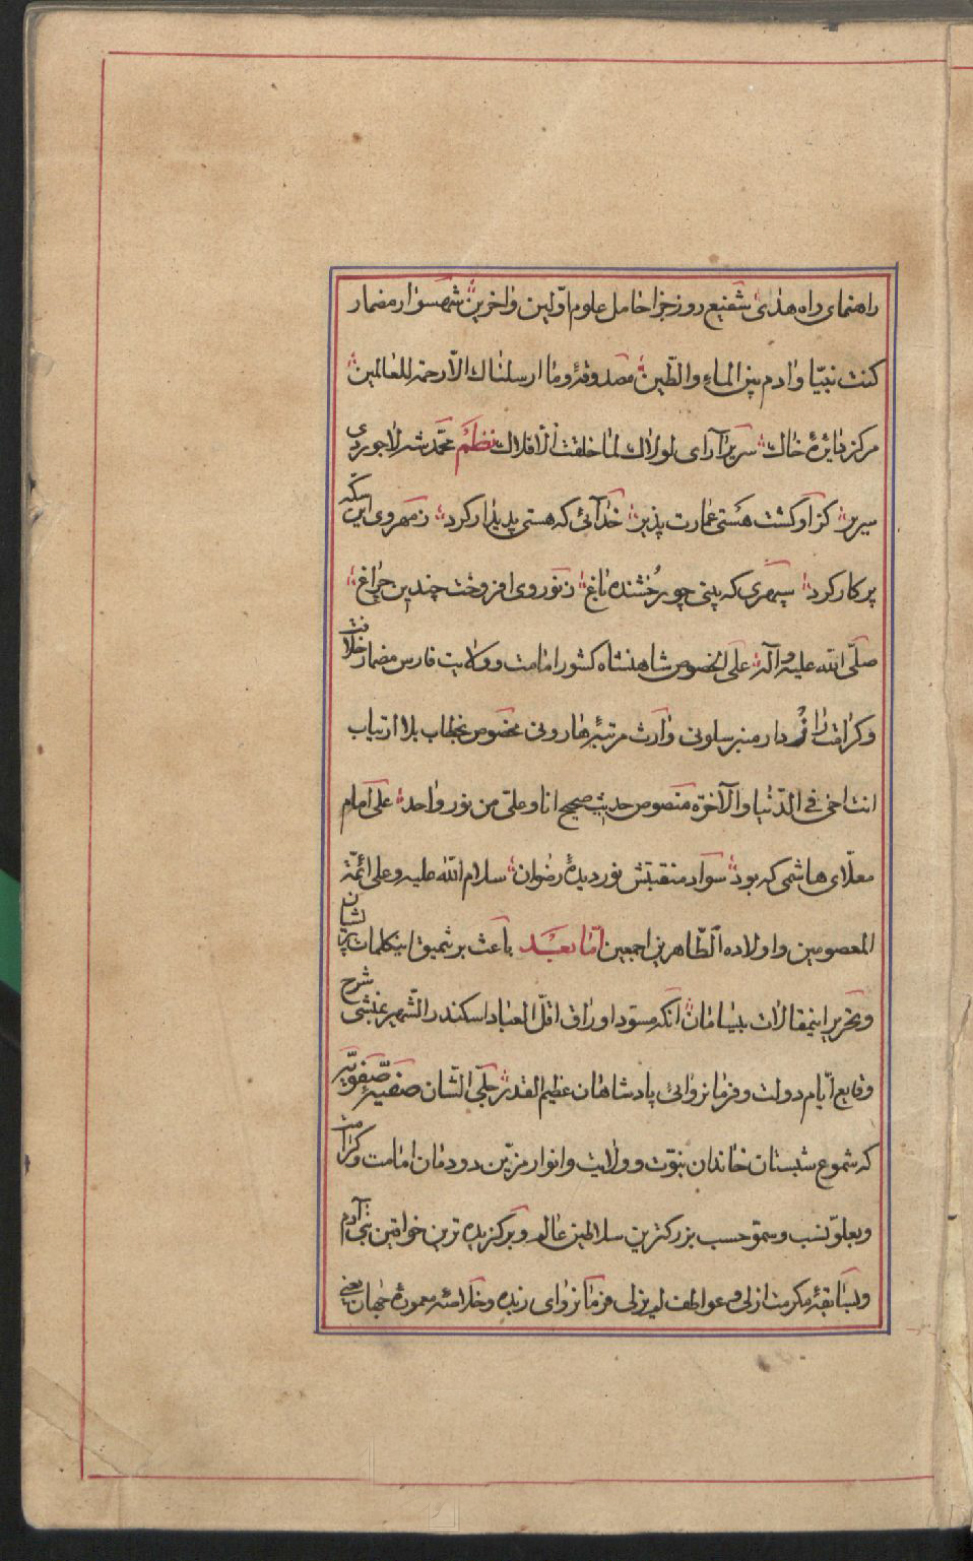 راهنمای راه هدی شفیع روز جزا حامل علوم اولین واخرین شهسوار مضمار
کنت نبیّا وادم بین الماء والطّین مصدوقهٔ وما ارسلناک الّا رحمة للعالمین
مرکز دایرهٔ خاک سریر آرای لولاک لما خلقت الافلاک نظم محمّد شه لاجوردی
سریر کزاو کشت هستی عمارت پذیر خدائی که هستی پدیدار کرد ز مهر وی این
پرکار کرد سپهری که بینی چو رخشنده باغ ز نور وی افروخت چندین چراغ
صلّی الله علیه وآله علی الخصوص شاهنشاه کشور امامت وولایت فارس مضمار خلافت
وکرامت دار منبر سلونی وارث مرتبهٔ هارونی مخصوص بخطاب بلا ارتیاب
انت اخی فی الدّنیا والآخره منصوص حدیث صحیح انا وعلیّ من نور واحد علی امام
معلّای هاشمی که بود سواد منقبتش نور دیدهٔ رضوان سلام الله علیه وعلی ائمّة
المعصومین واولاده الطّاهرین اجمعین امّا بعد باعث بر تنمیق اینکلمات
وتحریر اینمقالات آنکه مسوّد اوراق اقلّ العباد اسکندر الشّهیر بمنشی شرح
وقایع ایّام دولت وفرمانروائی پادشاهان عظیم القدر جلّی الشّان صفیّهٔ صفویّه
که شموع شبستان خاندان نبوّت وولایت وانوار مزیّن دودمان امامت وکرامت
وبعلوّ نسب وسموّ حسب بزرکترین سلاطین عالم وبرکزیده ترین خواقین بنی آدم
وبسابقهٔ مکرمت ازلی وعواطف لم یزلی فرمانروای زبده وخلاصه معمورهٔ جهان یعنی